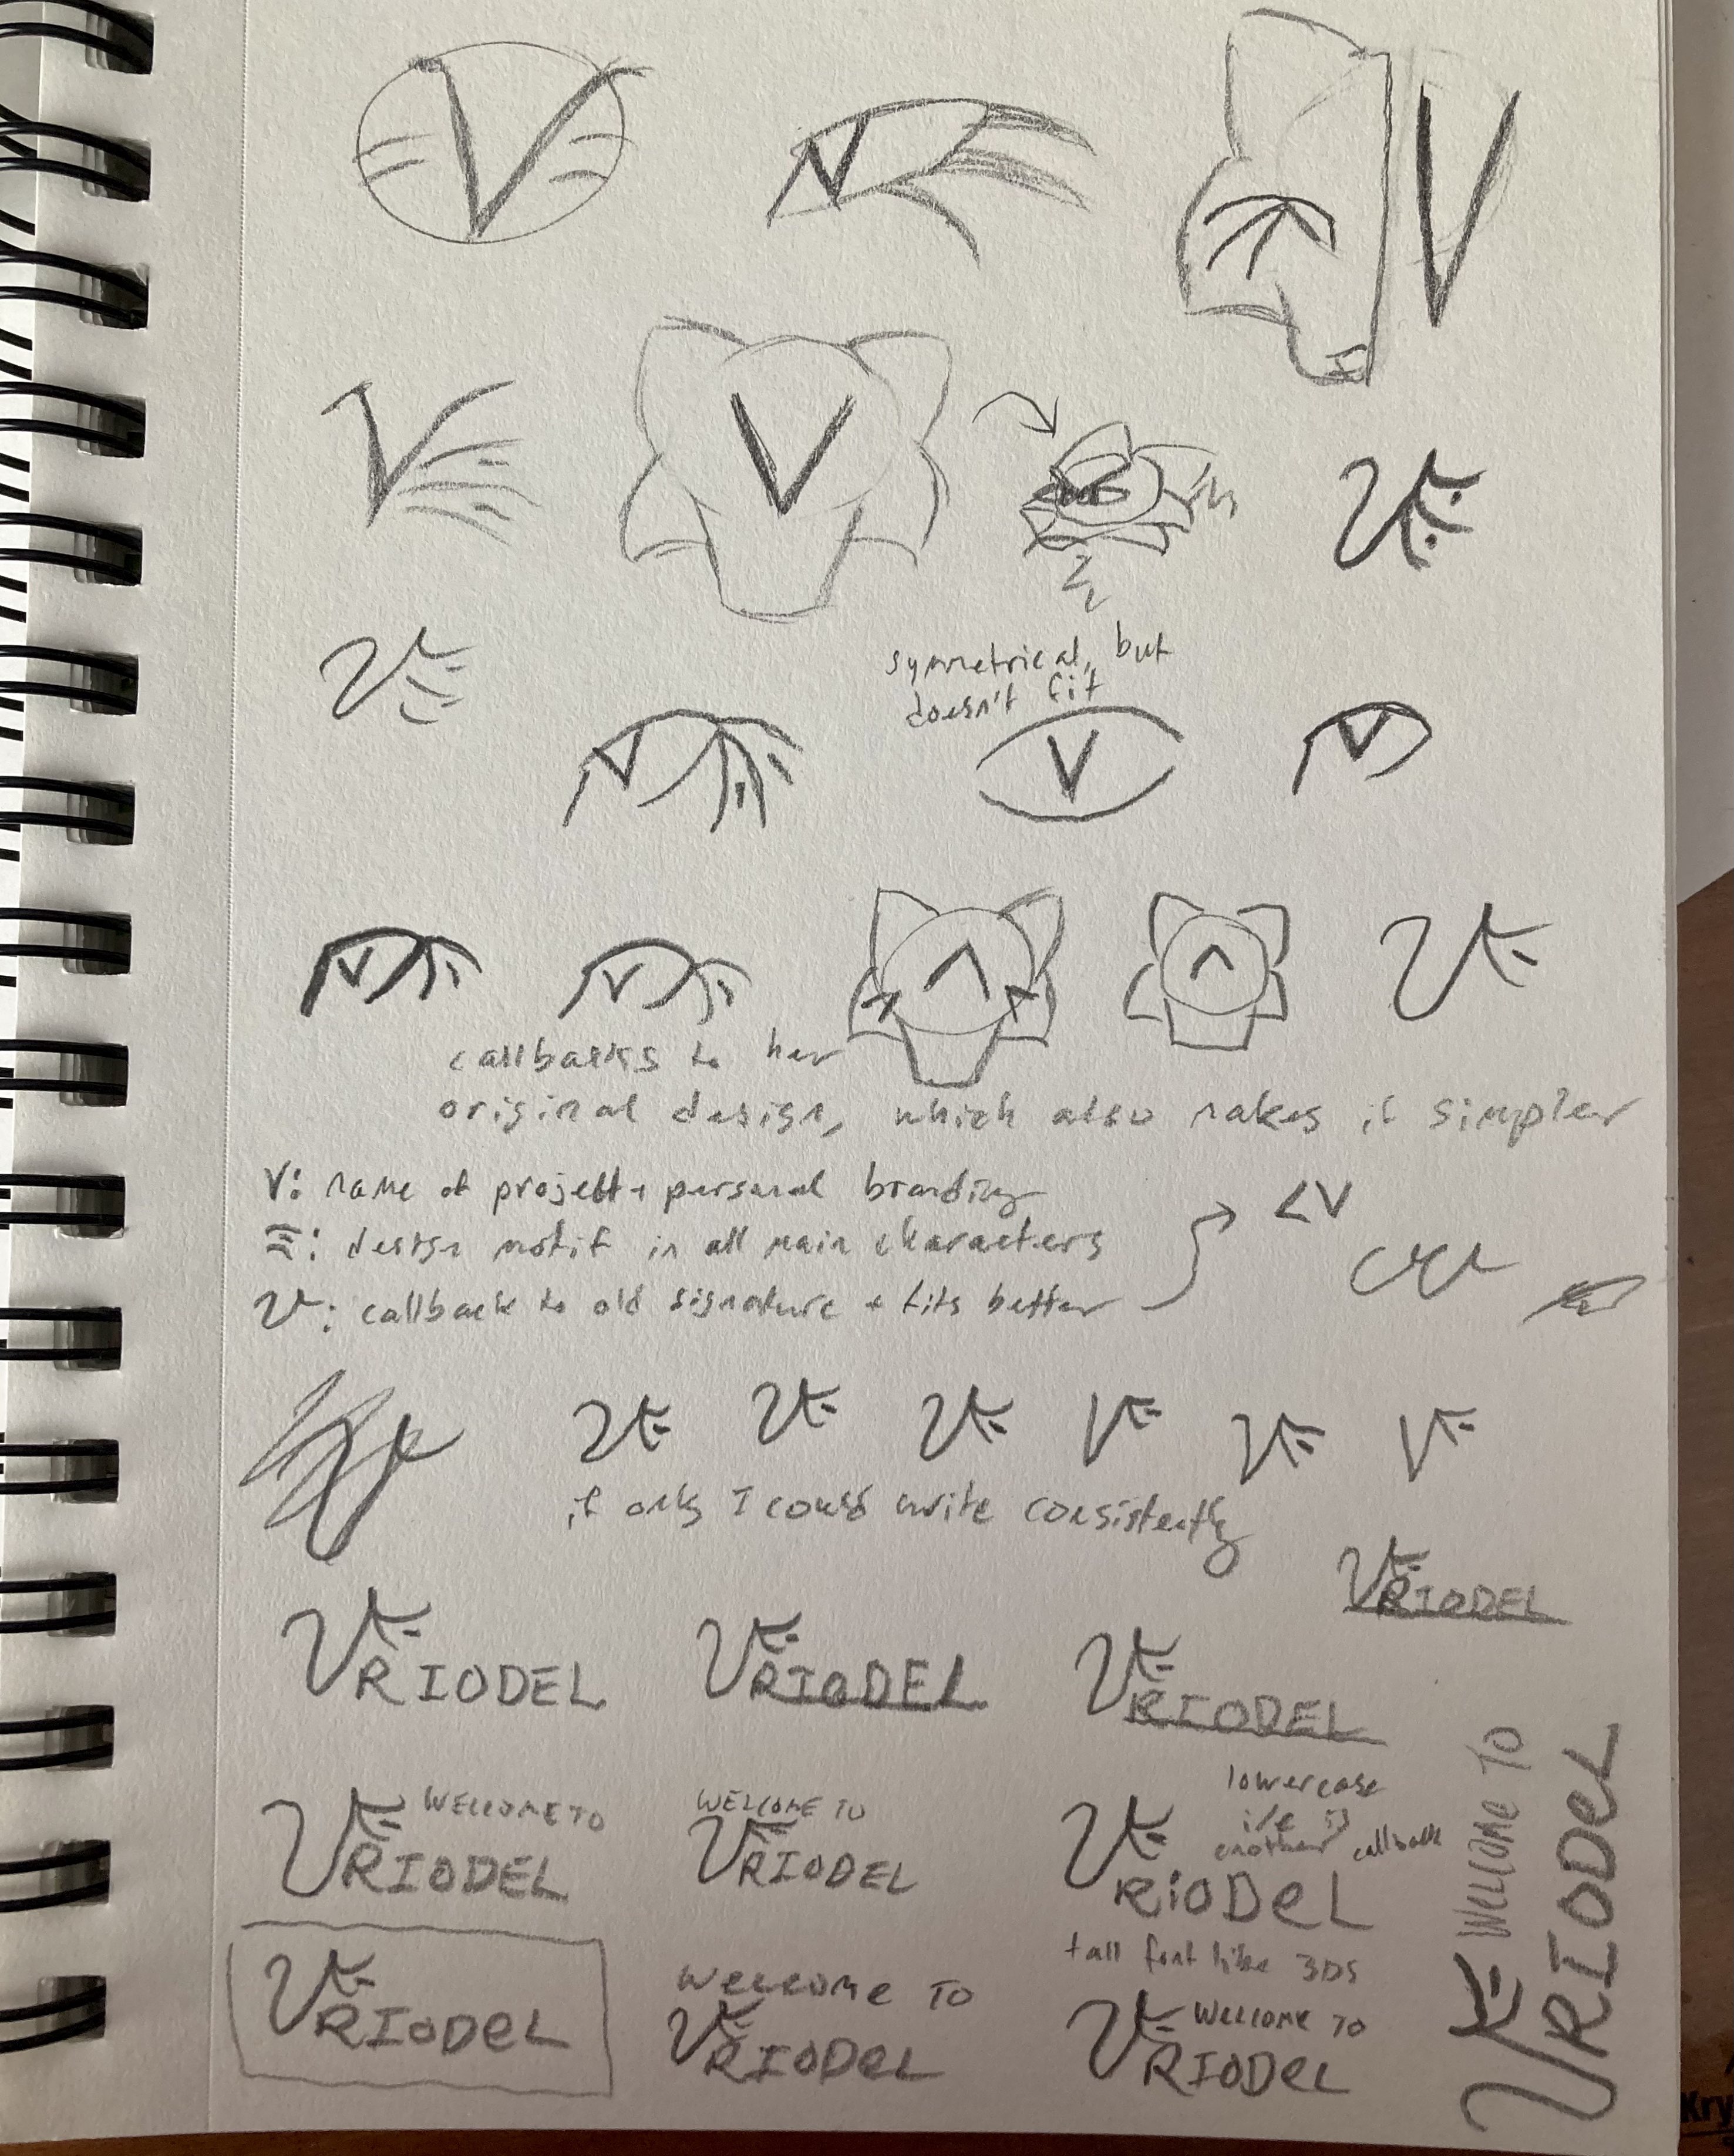 V
V
V
V
symmetrical, but
doesn't fit
V
V
V
V
callbacks to her
original design, which also makes it simpler
V: name of project + personal branding
: design motif in all main characters
V: callback to old signature + fits better
<V
if only I could write consistently
VRIODEL
VRIODEL
VRIODEL
VRIODEL
WELCOME TO
VRIODEL
WELCOME TO
VRIODEL
lowercase
i/e is
another callback
VRiODeL
tall font like 3DS
VRIODeL
WeLcome TO
VRIODeL
WeLcome TO
VRIODeL
WeLcome TO
VRIODeL
Kry